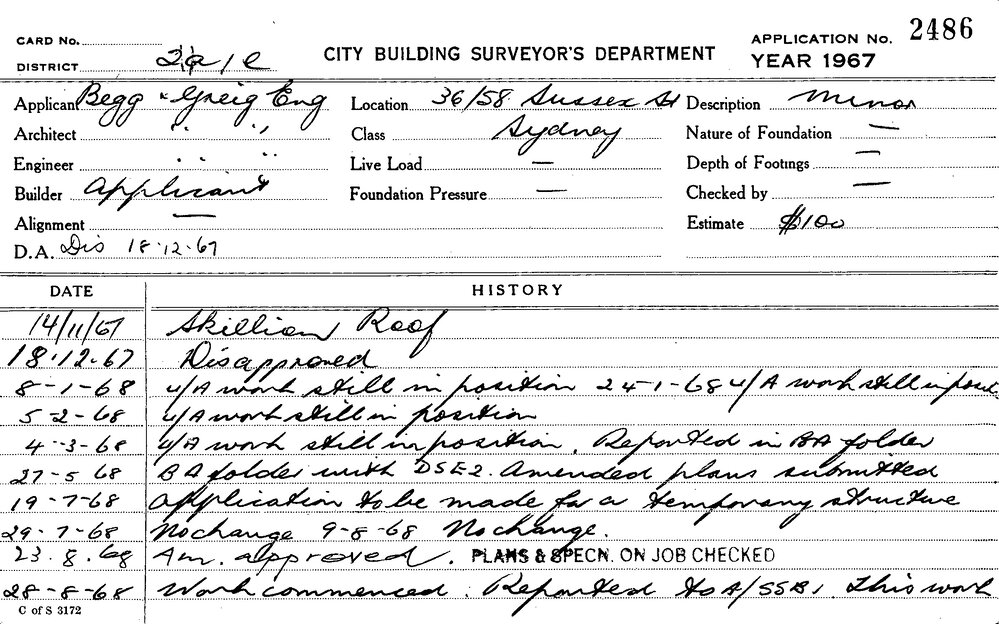 CARD No.
APPLICATION No. 2486
DISTRICT 2a/e
CITY BUILDING SURVEYOR'S DEPARTMENT
YEAR 1967
Applicant Begg & Greig Eng
Location 36/58 Sussex St
Description Minor
Architect " "
Class Sydney
Nature of Foundation —
Engineer " "
Live Load —
Depth of Footings —
Builder Applicant
Foundation Pressure —
Checked by —
Alignment —
Estimate $100
D.A. Dis 18.12.67
DATE HISTORY
14/11/67 Skillion Roof
18.12.67 Disapproved
8-1-68 U/A work still in position 24-1-68 U/A work still in posit
5-2-68 U/A work still in position
4-3-68 U/A work still in position. Reported in BA folder
27-5 68 BA folder with DSE2. Amended plans submitted
19-7-68 Application to be made for a temporary structure
29-7-68 No change 9-8-68 No change.
23.8.68 Am. approved. PLANS & SPECN. ON JOB CHECKED
28-8-68 Work commenced. Reported to A/SSB1. This work
C of S 3172